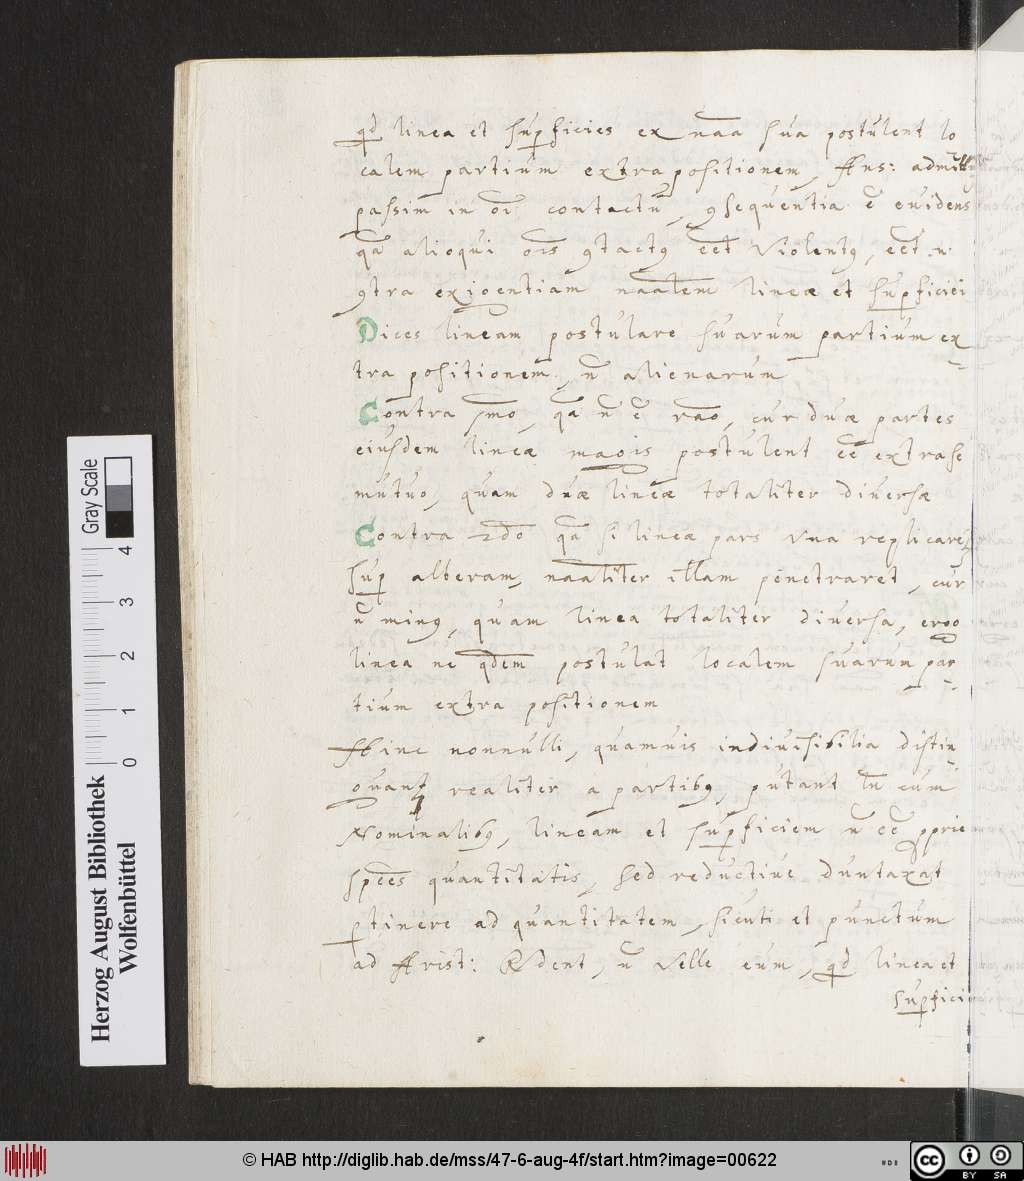 qd linea et supficies ex naa sua postulent lo
calem partium extra positionem, Ans: admitt
passim in oi contactu, 9sequentia e euidens
qa alioqui ois 9tact9 eet violent9, eet n:
9tra exigentiam naalem lineæ et supficiei
Dices lineam postulare suarum partium ex
tra positionem, n alienarum
Contra pmo, qa n e rao, cur duæ partes
eiusdem lineæ magis postulent ee extra se
mutuo, quam duæ lineæ totaliter diuersæ
Contra 2do qa si lineæ pars vna replicaret
sup alteram, naaliter illam penetraret, cur
n min9, quam linea totaliter diuersa, ergo
linea ne qdem postulat localem suarum par
tium extra positionem
Hinc nonnulli, quamuis indiuisibilia distin
guant realiter a partib9, putant tn cum
Nominalib9, lineam et supficiem n ee pprie
spees quantitatis, sed reductiue duntaxat
ptinere ad quantitatem, sicuti et punctum
ad Arist: Rdent, n velle eum, qd linea et
supfici
Herzog August Bibliothek
Wolfenbüttel
Gray Scale
0 1 2 3 4
© HAB http://diglib.hab.de/mss/47-6-aug-4f/start.htm?image=00622
cc BY SA